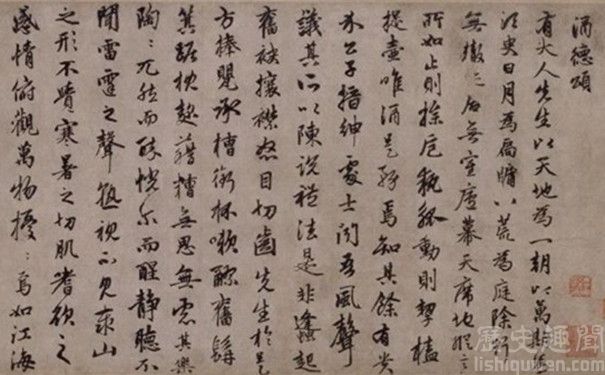 酒德頌
有大人先生以天地為一朝以萬期為
須臾日月為扃牖八荒為庭除行
無轍跡居無室廬幕天席地縱意
所如止則操卮執觚動則挈榼
提壺唯酒是務焉知其餘有貴
介公子搢紳處士聞吾風聲
議其所以陳說禮法是非鋒起
奮袂攘襟怒目切齒先生於是
方捧甖承槽銜杯漱醪奮髯
箕踞枕麴藉糟無思無慮其樂
陶々兀然而醉恍爾而醒靜聽不
聞雷霆之聲孰視不見泰山
之形不覺寒暑之切肌嗜欲之
感情俯觀萬物擾々焉如江海
歷史趣聞
lishiquwen.com